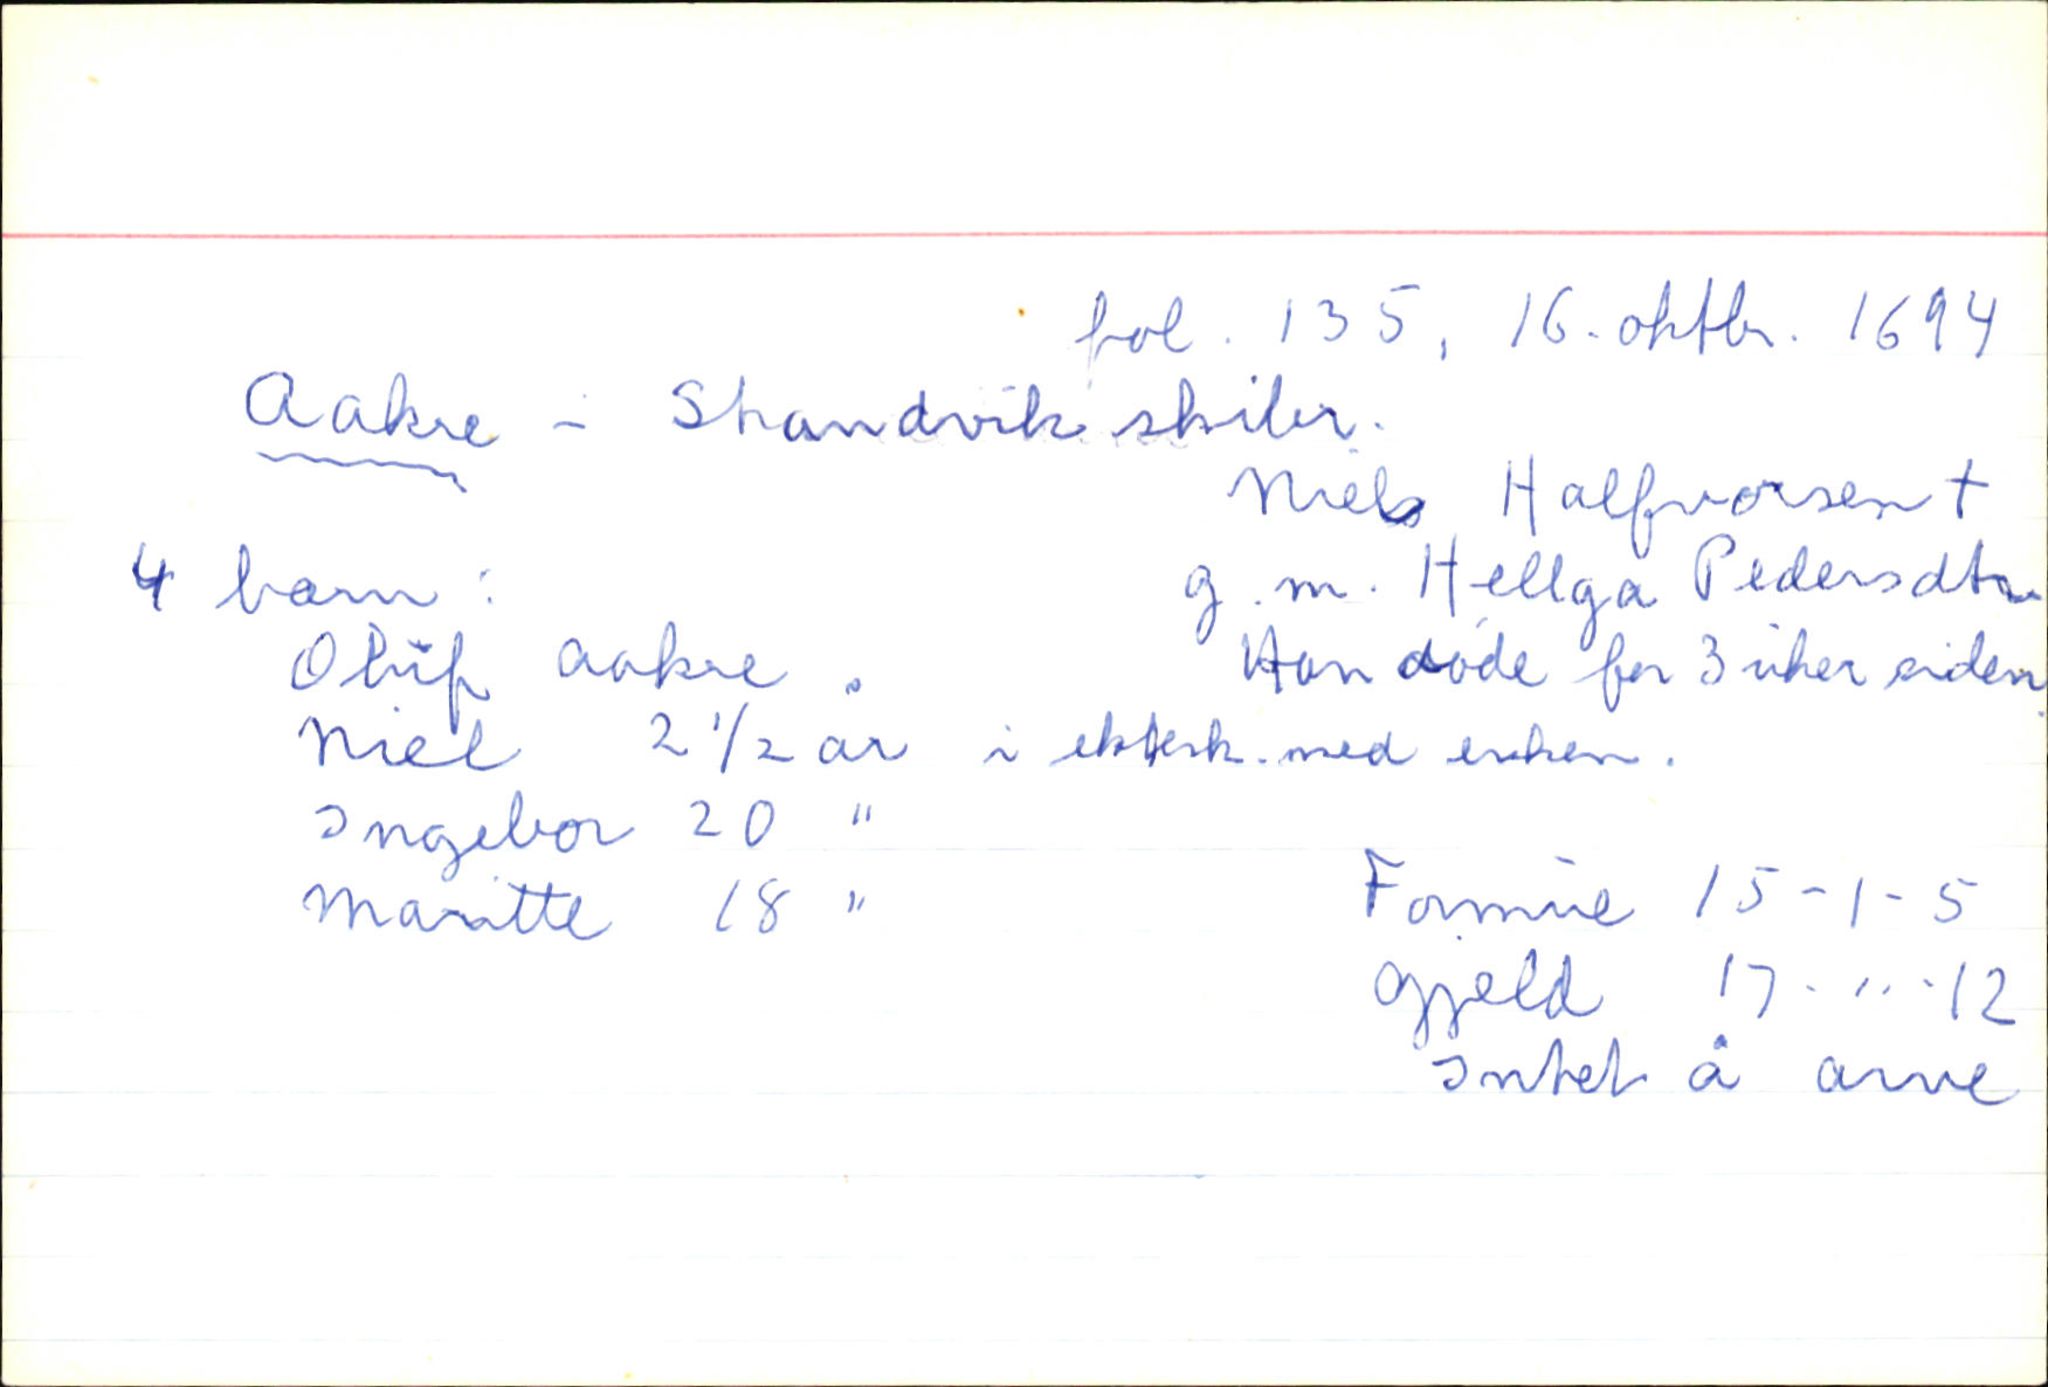 fol. 135, 16. oktbr. 1694
Aakre - Strandvik skiber.
Niels Halfvorsen †
4 barn: g.m. Hellga Pedersdtr
Oluf Aakre. Han døde for 3 uker siden
Niel 2 1/2 år i ektesk. med enken.
Ingebor 20 "
Maritte 18 " Formue 15-1-5
Gjeld 17-"-12
Intet å arve